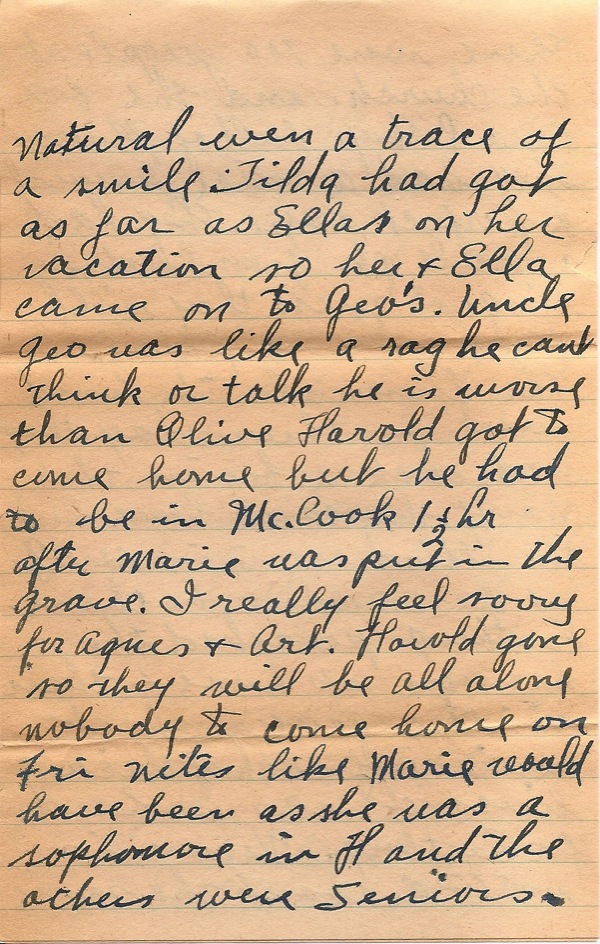 Natural even a trace of
a smile. Tilda had got
as far as Ellas on her
vacation so her & Ella
came on to Geo's. Uncle
Geo was like a rag he cant
think or talk he is worse
than Olive Harold got to
come home but he had
to be in Mc.Cook 1½ hr
after Marie was put in the
grave. I really feel sorry
for Agnes & Art. Harold gone
so they will be all alone
nobody to come home on
Fri nites like Marie would
have been as she was a
sophomore in H and the
others were Seniors.